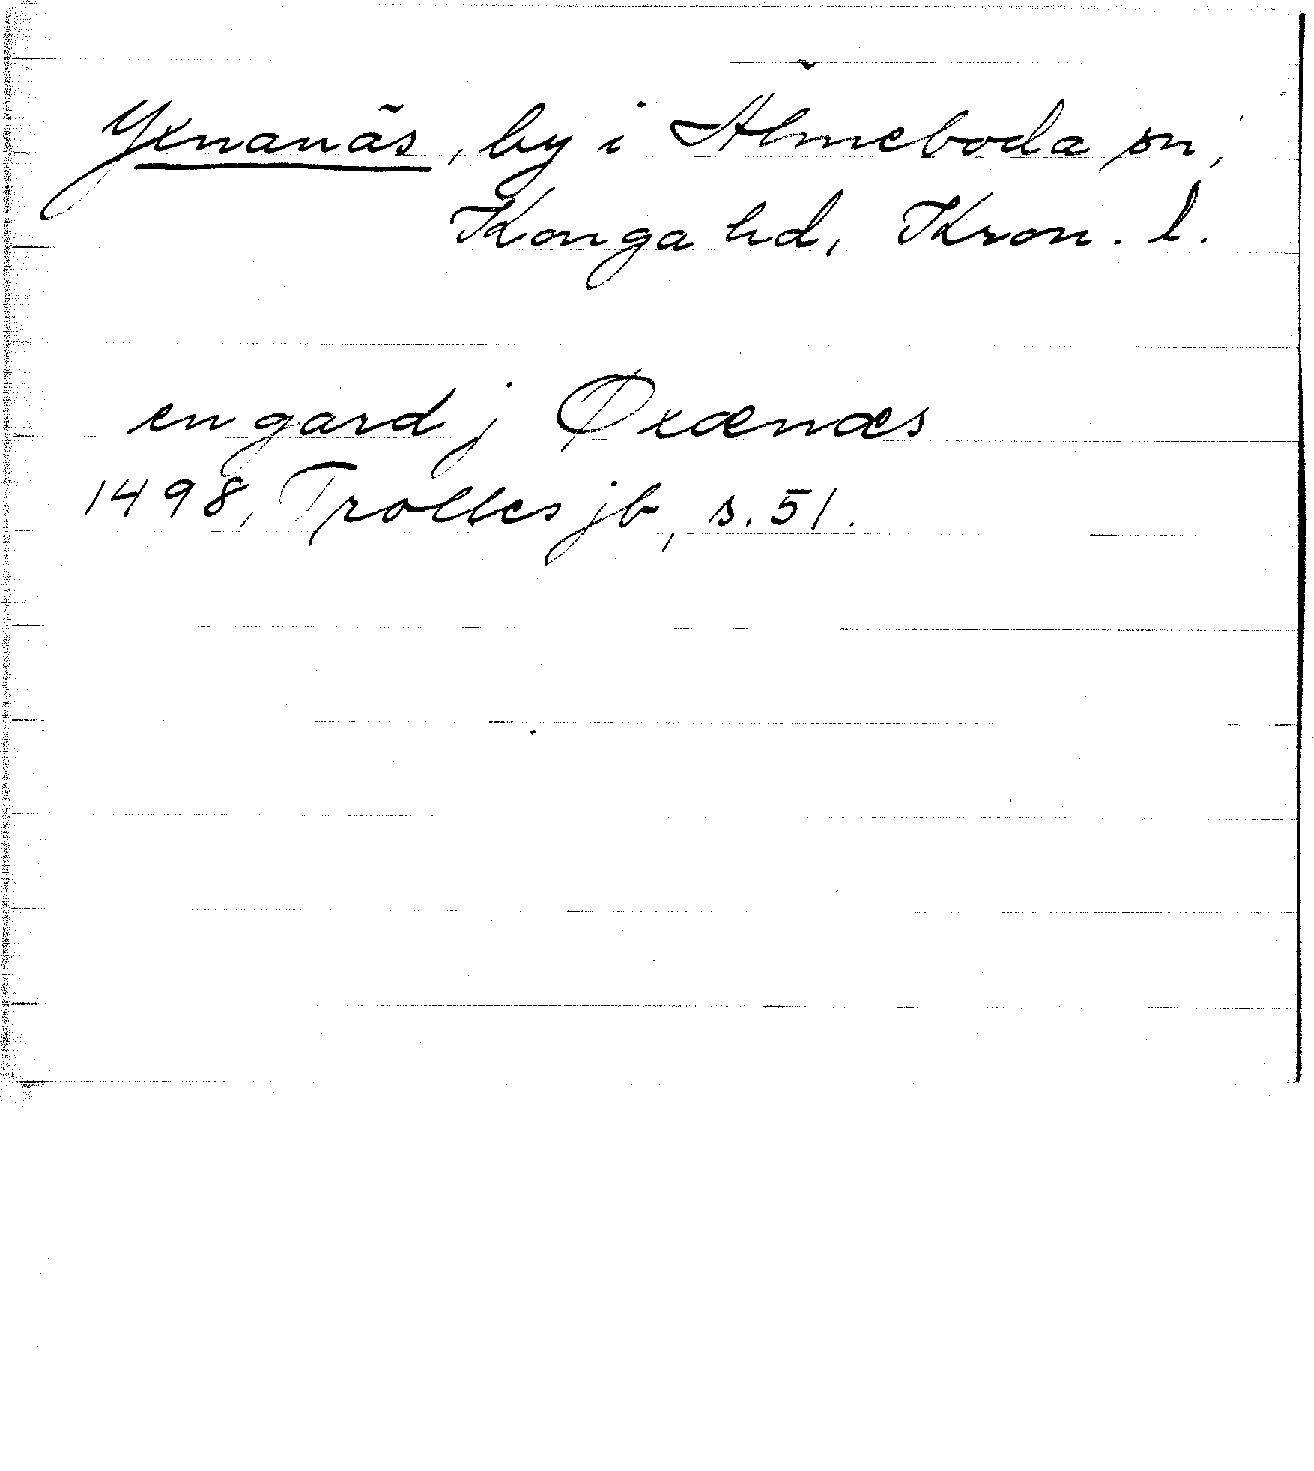 Yxnanäs, by i Älmeboda sn,
Konga hd, Kron. l.
en gard j Øxænæs
1498, Trolles jb, s. 51.